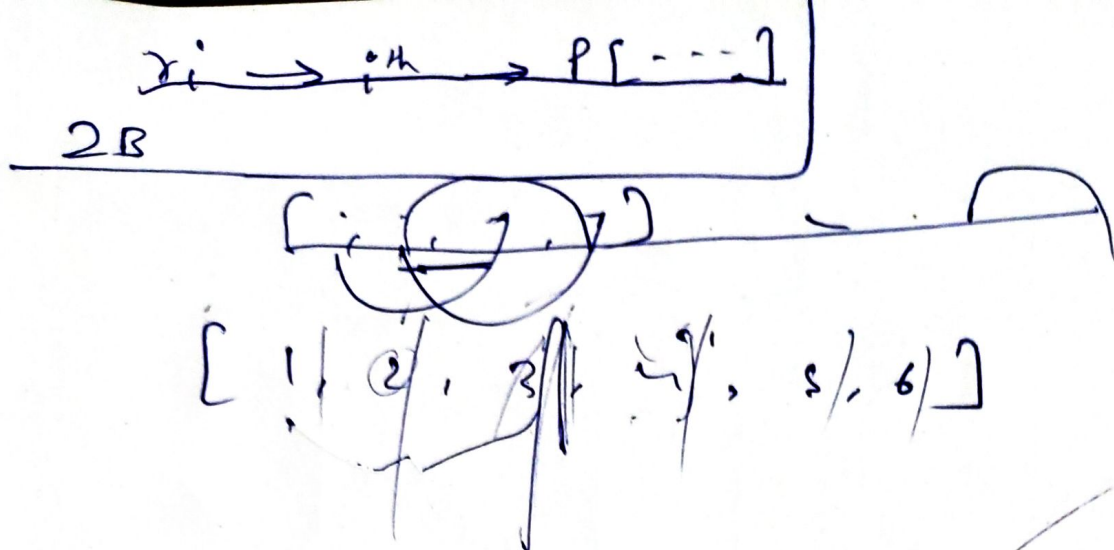 ri → ith → P[----]
2B
[ , , , ]
[ 1, 2, 3, 4, 5, 6 ]